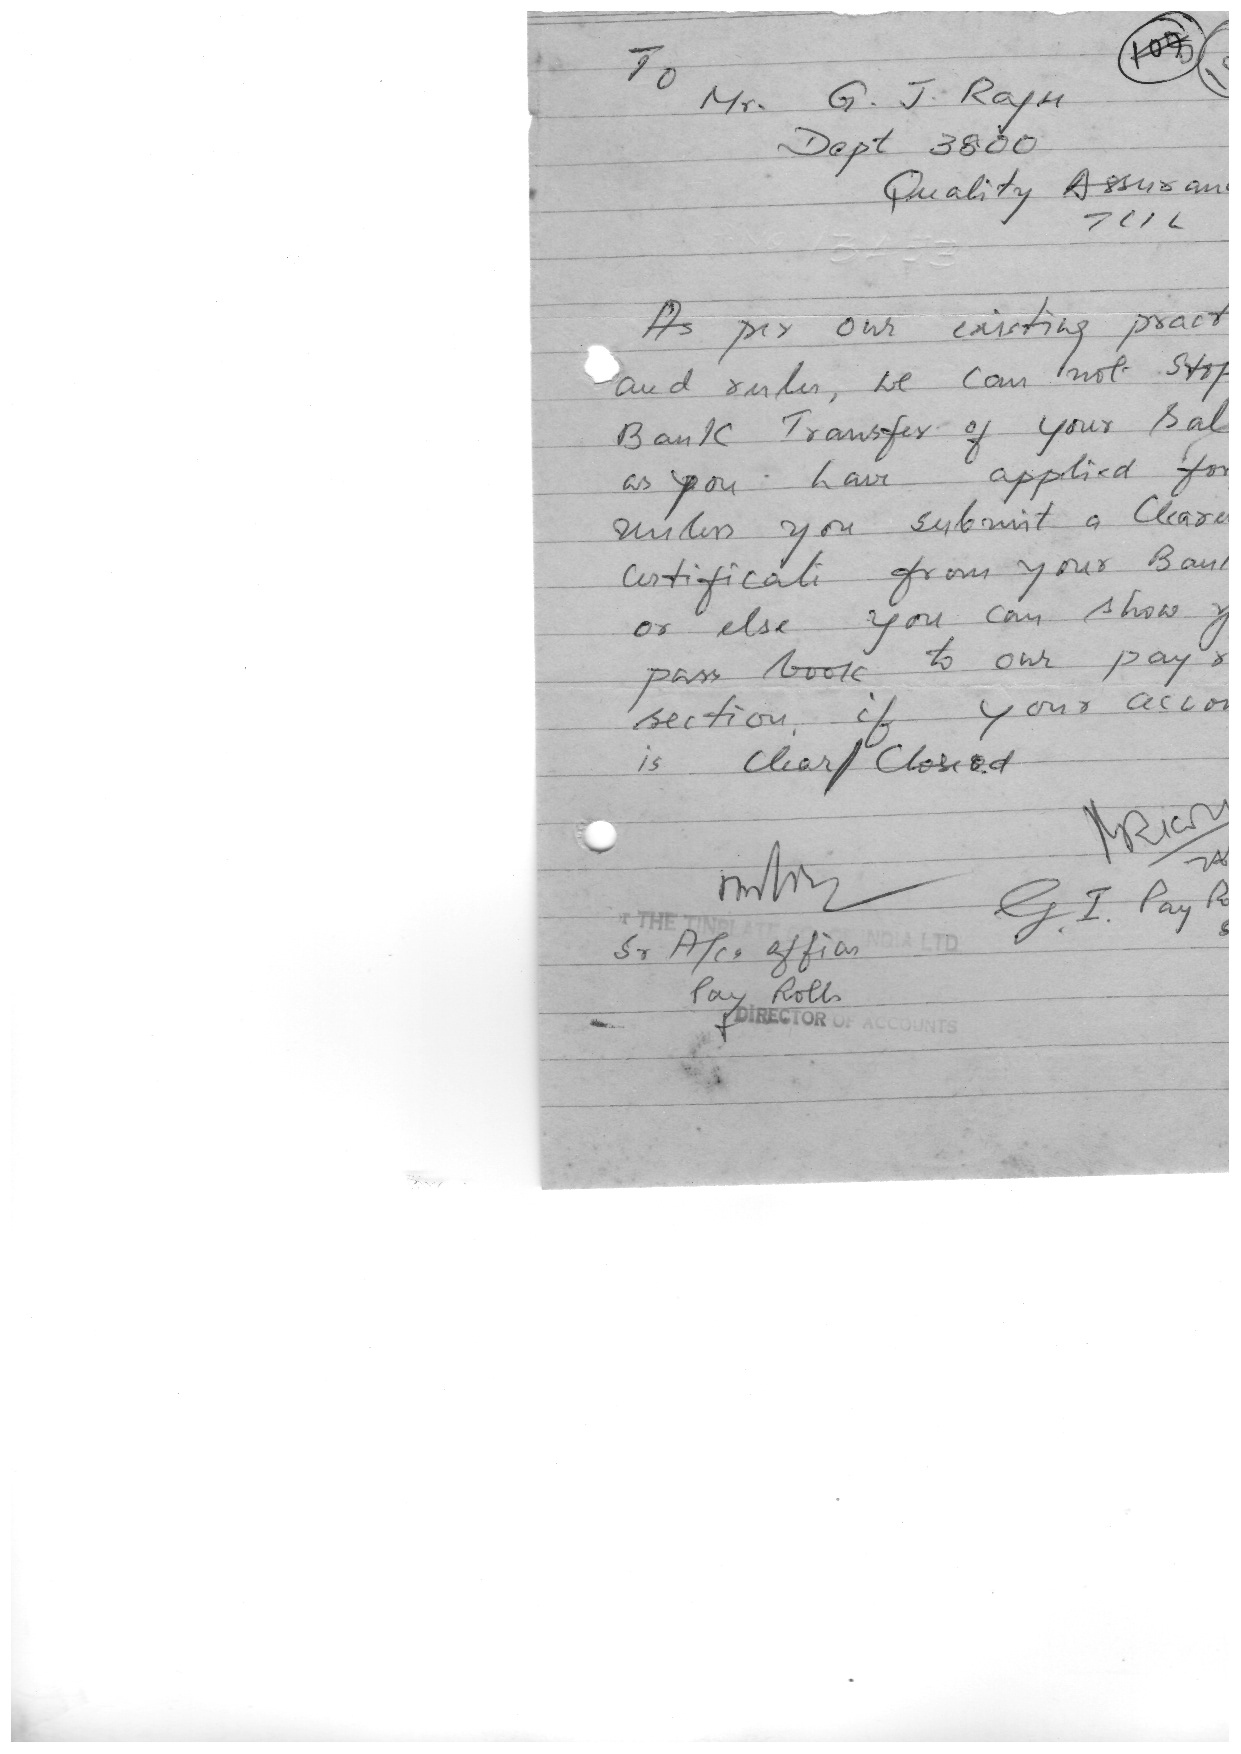 107
To
Mr. G. J. Raju
Dept 3800
Quality Assuran
TCIL
As per our existing pract
and rules, we can not stop
Bank Transfer of your Sal
as you have applied for
unless you submit a Cleare
Certificate from your Ban
or else you can show y
pass book to our pay r
section, if your accou
is Clear/Closed
G. I. Pay Ro
For THE TINPLATE CO. OF INDIA LTD
Sr A/cs officer
Pay Rolls
DIRECTOR OF ACCOUNTS